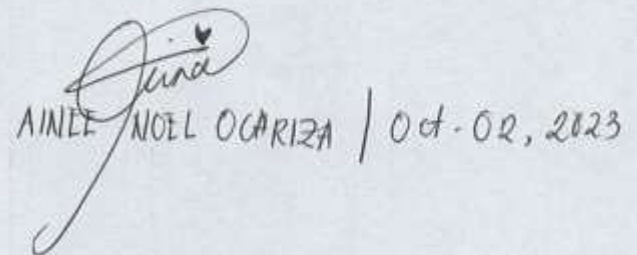 AINEE NOEL OCARIZA | Oct. 02, 2023